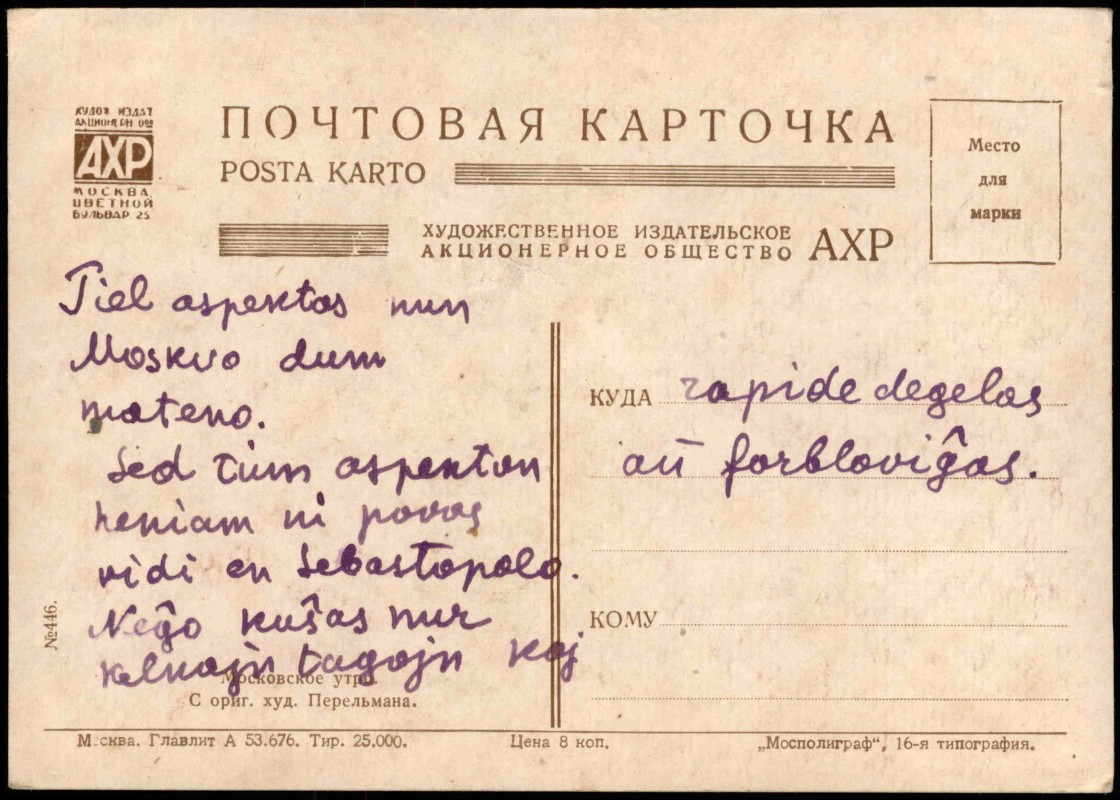 ХУДОЖ ИЗДАТ
АКЦИОНЕРН ОБЩ
АХР
МОСКВА,
ЦВЕТНОЙ
БУЛЬВАР. 25
ПОЧТОВАЯ КАРТОЧКА
POSTA KARTO
ХУДОЖЕСТВЕННОЕ ИЗДАТЕЛЬСКОЕ
АКЦИОНЕРНОЕ ОБЩЕСТВО АХР
Место
для
марки
Tiel aspektas nun
Moskvo dum
mateno.
Sed tium aspekton
neniam ni povas
vidi en Sebastopolo.
Neĝo kuŝas nur
kelkajn tagojn kaj
КУДА rapide degelas
aŭ forbloviĝas.
КОМУ
№446.
Московское утро.
С ориг. худ. Перельмана.
Москва. Главлит А 53.676. Тир. 25.000.
Цена 8 коп.
„Мосполиграф“, 16-я типография.